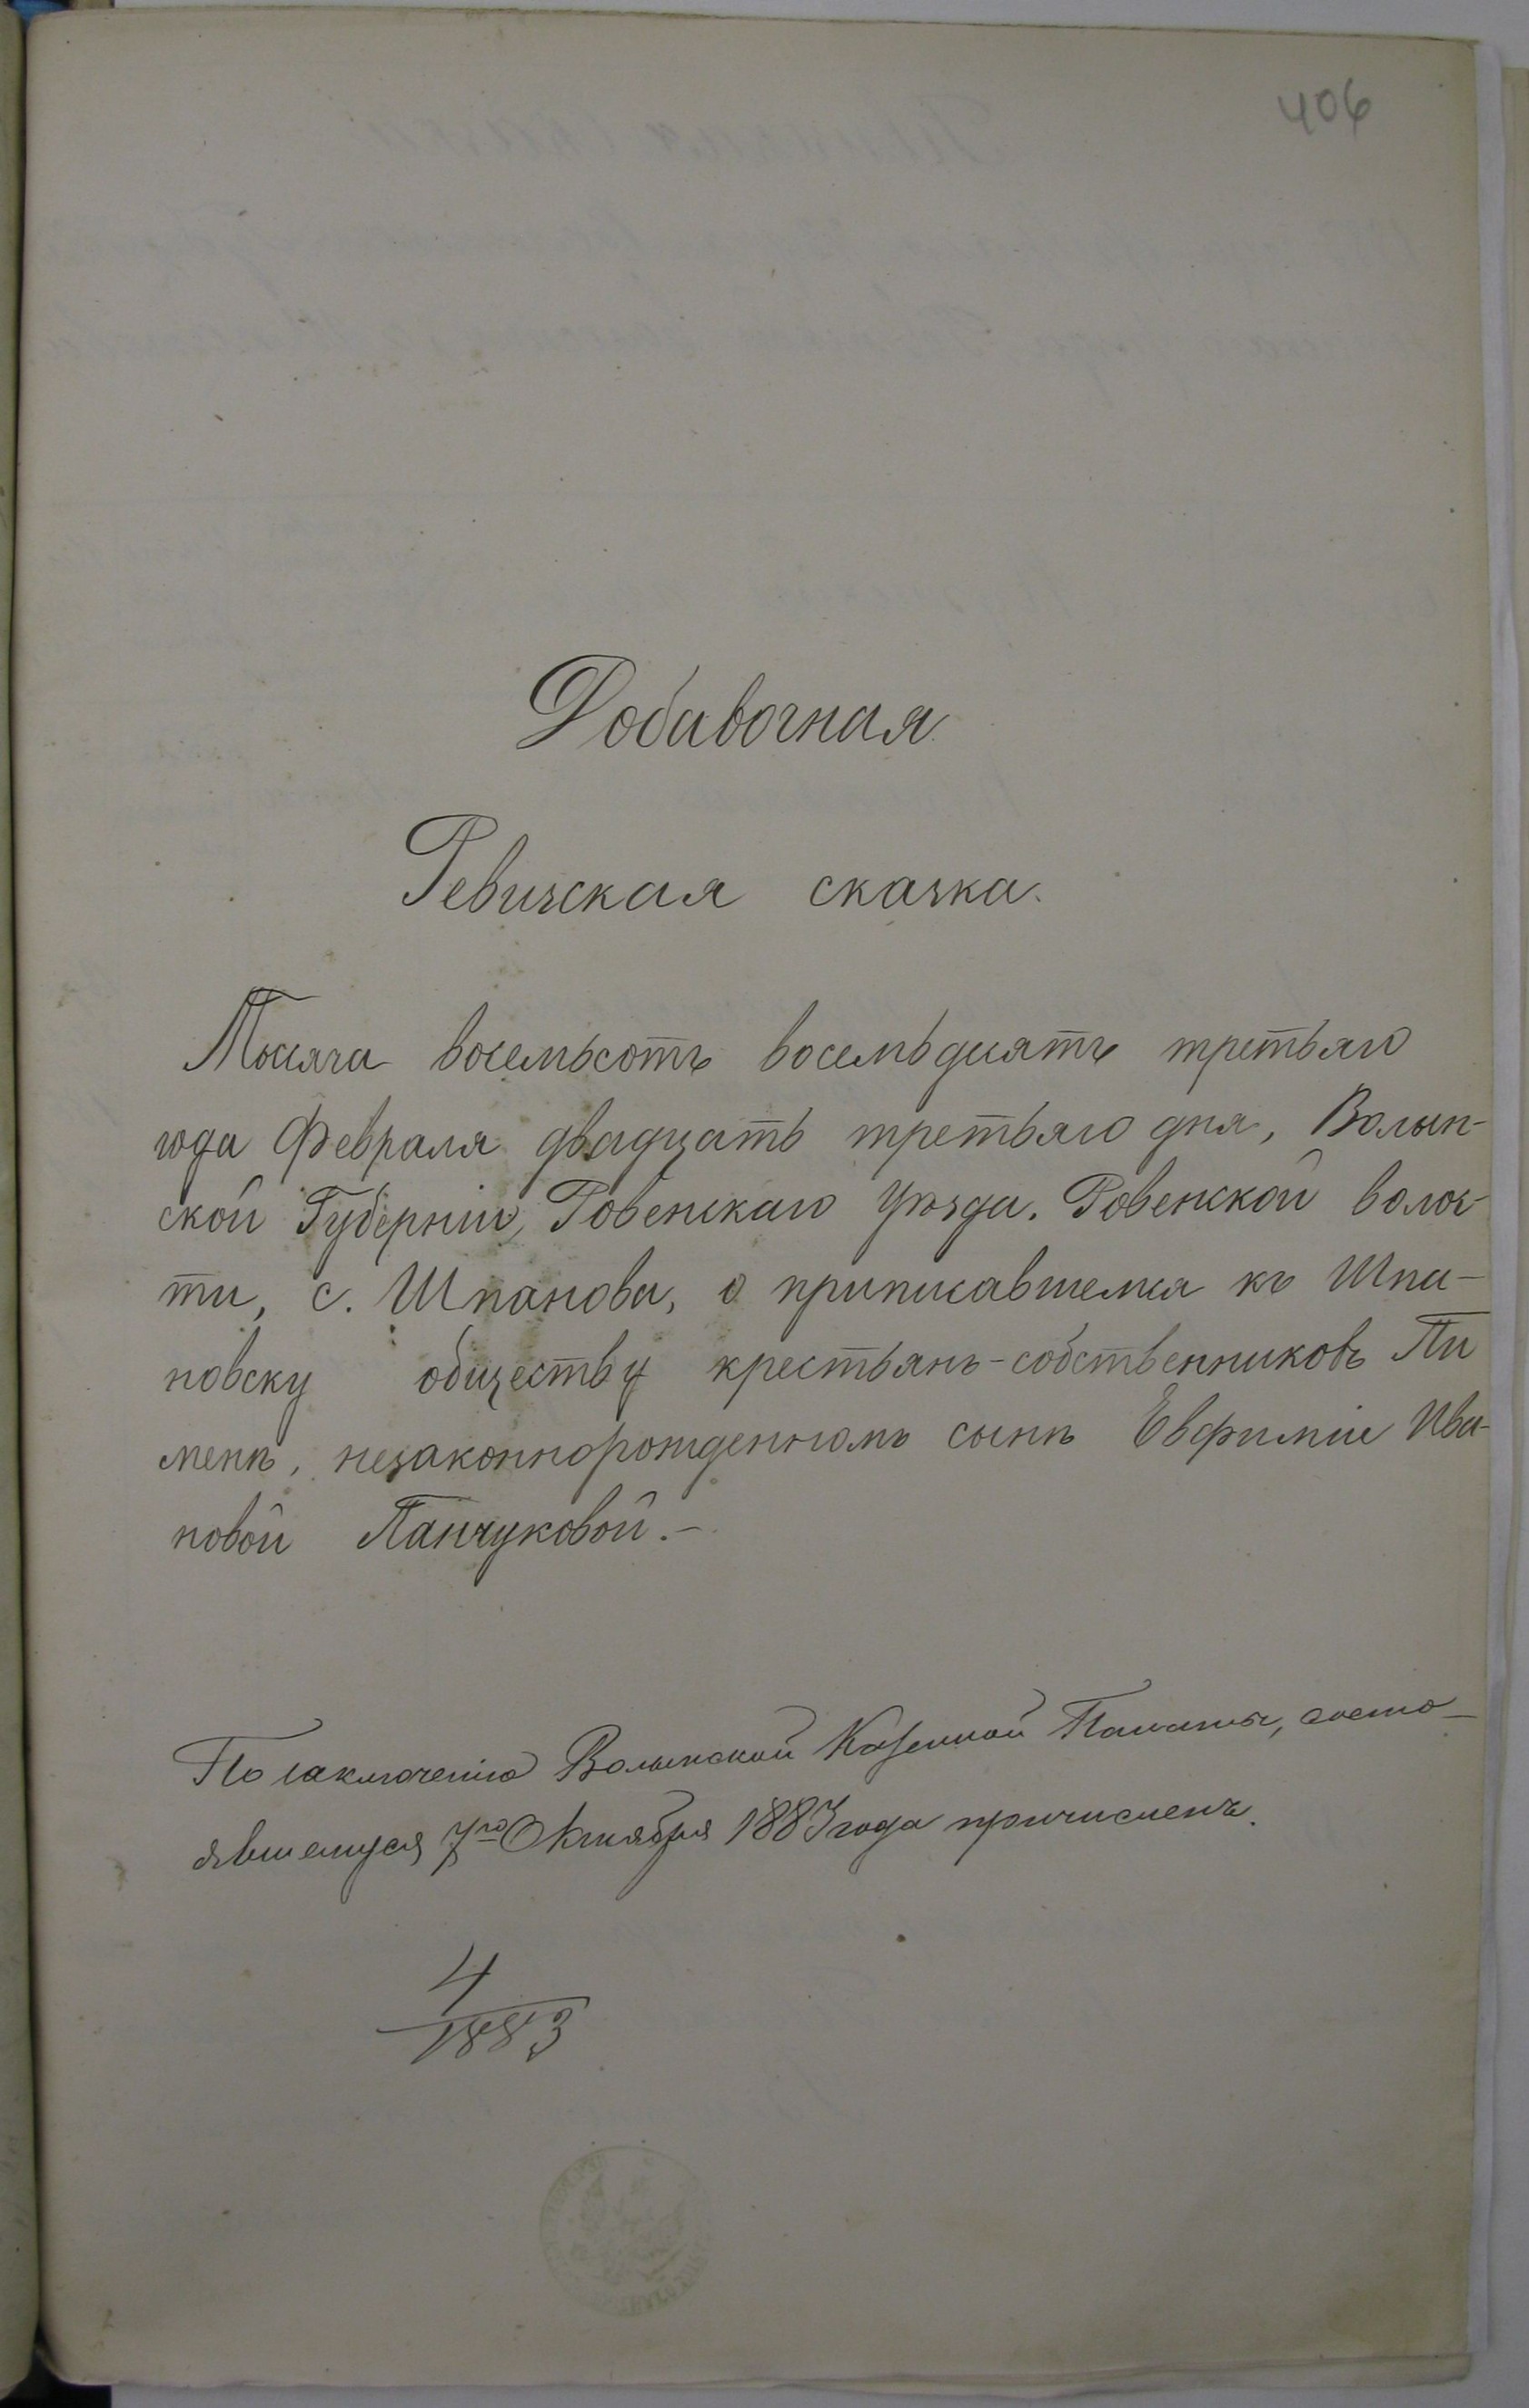 406
Добавочная
Ревизская сказка.
Тысяча восемьсотъ восемьдесятъ третьяго
года Февраля двадцать третьяго дня, Волын-
ской Губерніи, Ровенскаго Уѣзда. Ровенской волос-
ти, с. Шпанова, о приписавшемся къ Шпа-
новску обществу крестьянъ-собственниковъ Пи
менѣ, незаконнорожденномъ сынѣ Евфиміи Ива-
новой Панчуковой.-
По заключенію Волынской Казенной Палаты, состо-
явшемуся 7го Октября 1883 года причисленъ.
4
1883